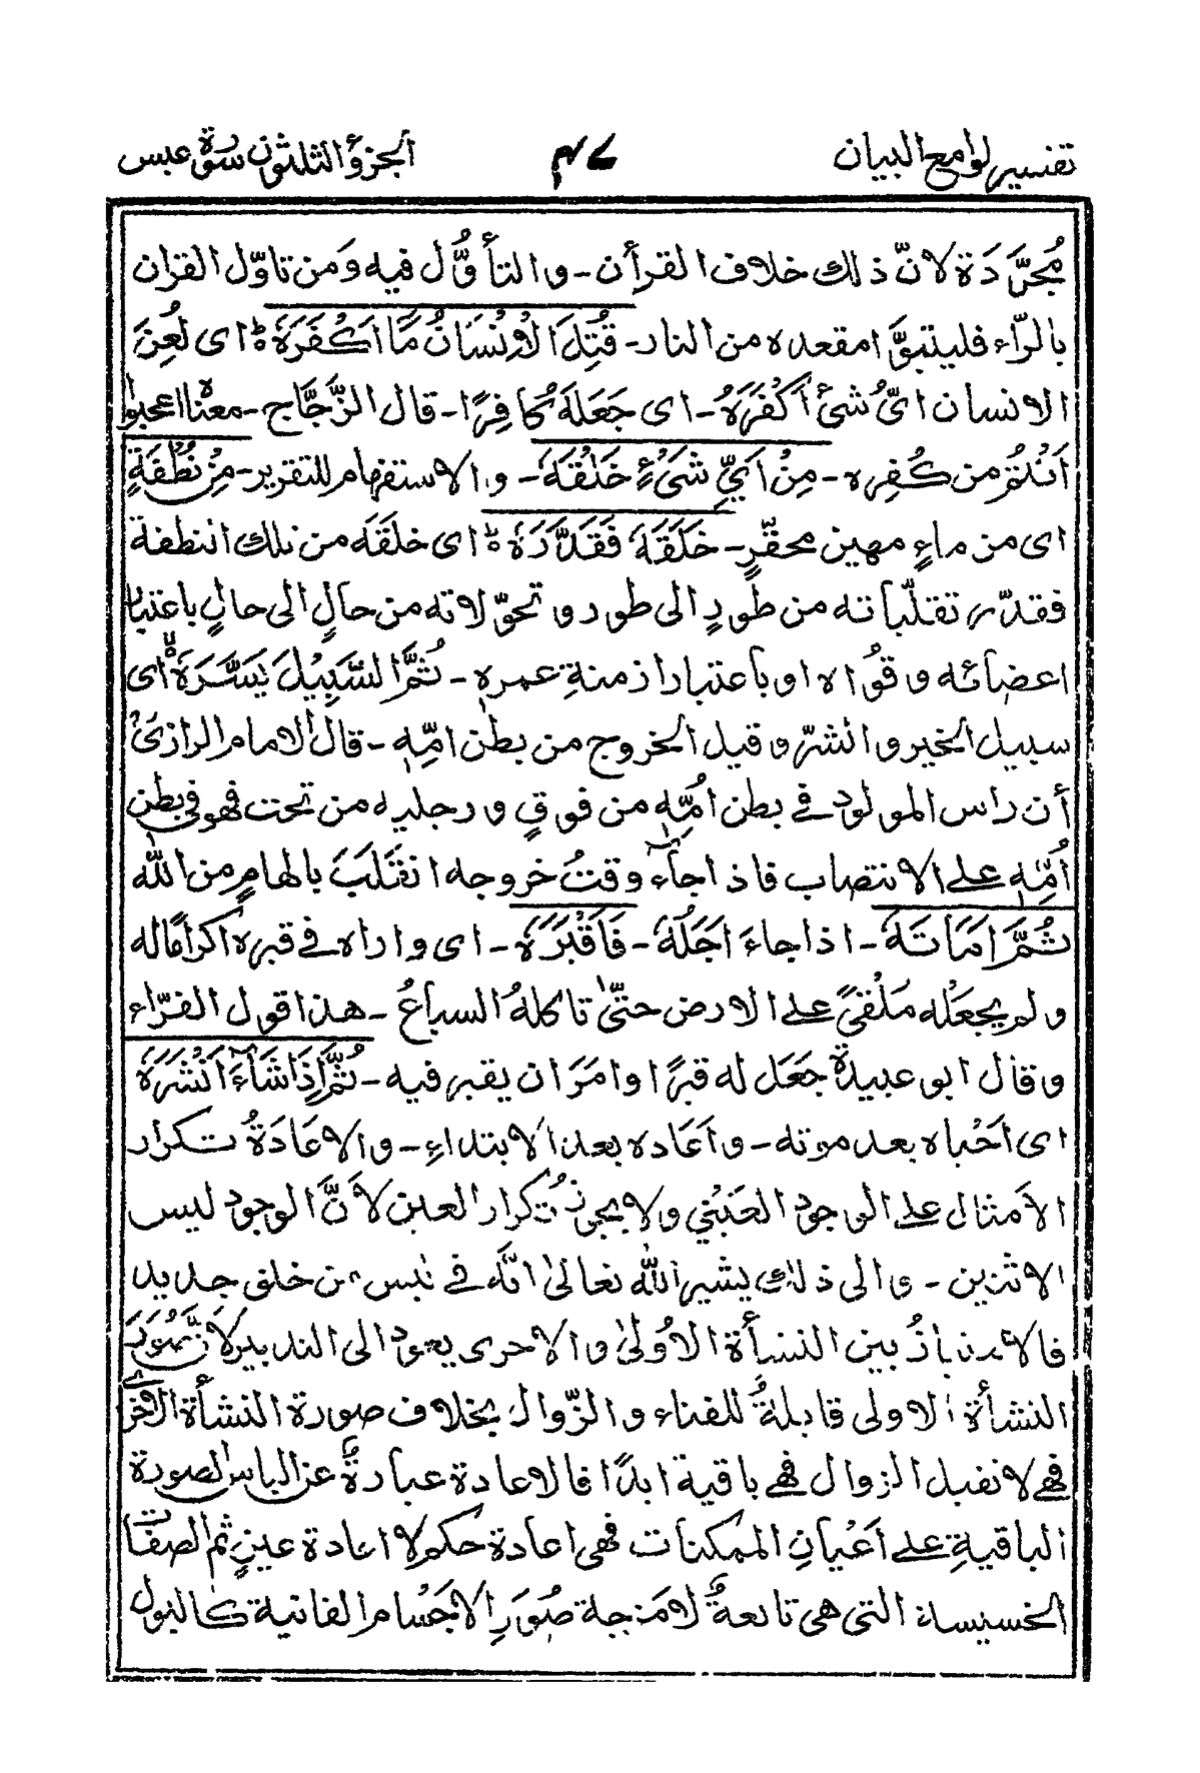 تفسير لوامع البيان ٤٧ الجزؤ الثلثون سورة عبس
مُجرَّدَة لانّ ذلك خلاف القرأن - والتأوُّل فيه وَمن تاوّل القران
بالرّاء فليتبوَّا مقعده من النار - قُتِلَ الْاِنْسَانُ مَا اَكْفَرَهٗ ط اى لُعِنَ
الانسان اىُّ شئ أَكْفَرَهُ - اى جَعَلَهٗ كافِرًا - قال الزَّجَّاج - معناه اعجبوا
اَنْتُم من كُفره - مِنْ اَيِّ شَىْءٍ خَلَقَهٗ - والاستفهام للتقرير - مِنْ نُطْفَةٍ
اى من ماءٍ مهين محقّرٍ - خَلَقَهٗ فَقَدَّرَهٗ ط اى خلقَه من تلك النطفة
فقدّر تقلّباته من طورٍ الى طور و تحوّلاته من حالٍ الى حالٍ باعتبار
اعضائه وقُواه او باعتبار ازمنةِ عمره - ثُمَّ السَّبِيْلَ يَسَّرَهٗ اى
سبيل الخير والشرّ وقيل الخروج من بطن امِّه - قال الامام الرازىُّ
أن راس المولود فى بطن امِّه من فوقٍ ورجليه من تحت فهو فى بطن
اُمِّه على الانتصاب فاذا جاء وقتُ خروجه انقَلَبَ بالهامٍ من الله
ثُمَّ اَمَاتَهٗ - اذا جاءَ اَجَلُهٗ - فَاَقْبَرَهٗ - اى واراه فى قبره اكرامًا له
ولم يجعَلْه مَلْقىً على الارض حتّىٰ تاكلهُ السباعُ - هذا قول الفرّاء
وقال ابو عبيدة جَعَل له قبرًا وامَرَ ان يقبر فيه - ثُمَّ اِذَا شَآءَ اَنْشَرَهٗ
اى اَحْياه بعد موته - واَعَاده بعد الابتداءِ - والاعَادَةُ تكرار
الأمثال على الوجود العَيْنِي ولا يجوز تكرار العين لأَنَّ الوجود ليس
الاثنين - والى ذلك يشير الله تعالىٰ انّه فى لبس من خلق جديد
فالامتيازُ بين النشأة الاُولىٰ والاخرى يعود الى التدبير لانَّ صُوَرَ
النشأة الاولى قابلةُ للفناء والزّوال بخلاف صورة النشأة الاخرىٰ
فهى لا تقبل الزوال فهى باقية ابدًا فالاعادة عبارةٌ عن الباس الصورة
الباقيةِ على اَعْيانِ الممكنات فهى اعادة حكم لا اعادة عينٍ ثم الصفات
الخسيسة التى هى تابعةٌ لامزجة صُوَرِ الاجْسام الفانية كالبول